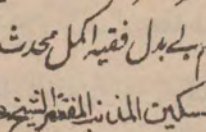 بے بدل فقیہ اکمل محدث
سکین المذنب المفتقر الشیخ